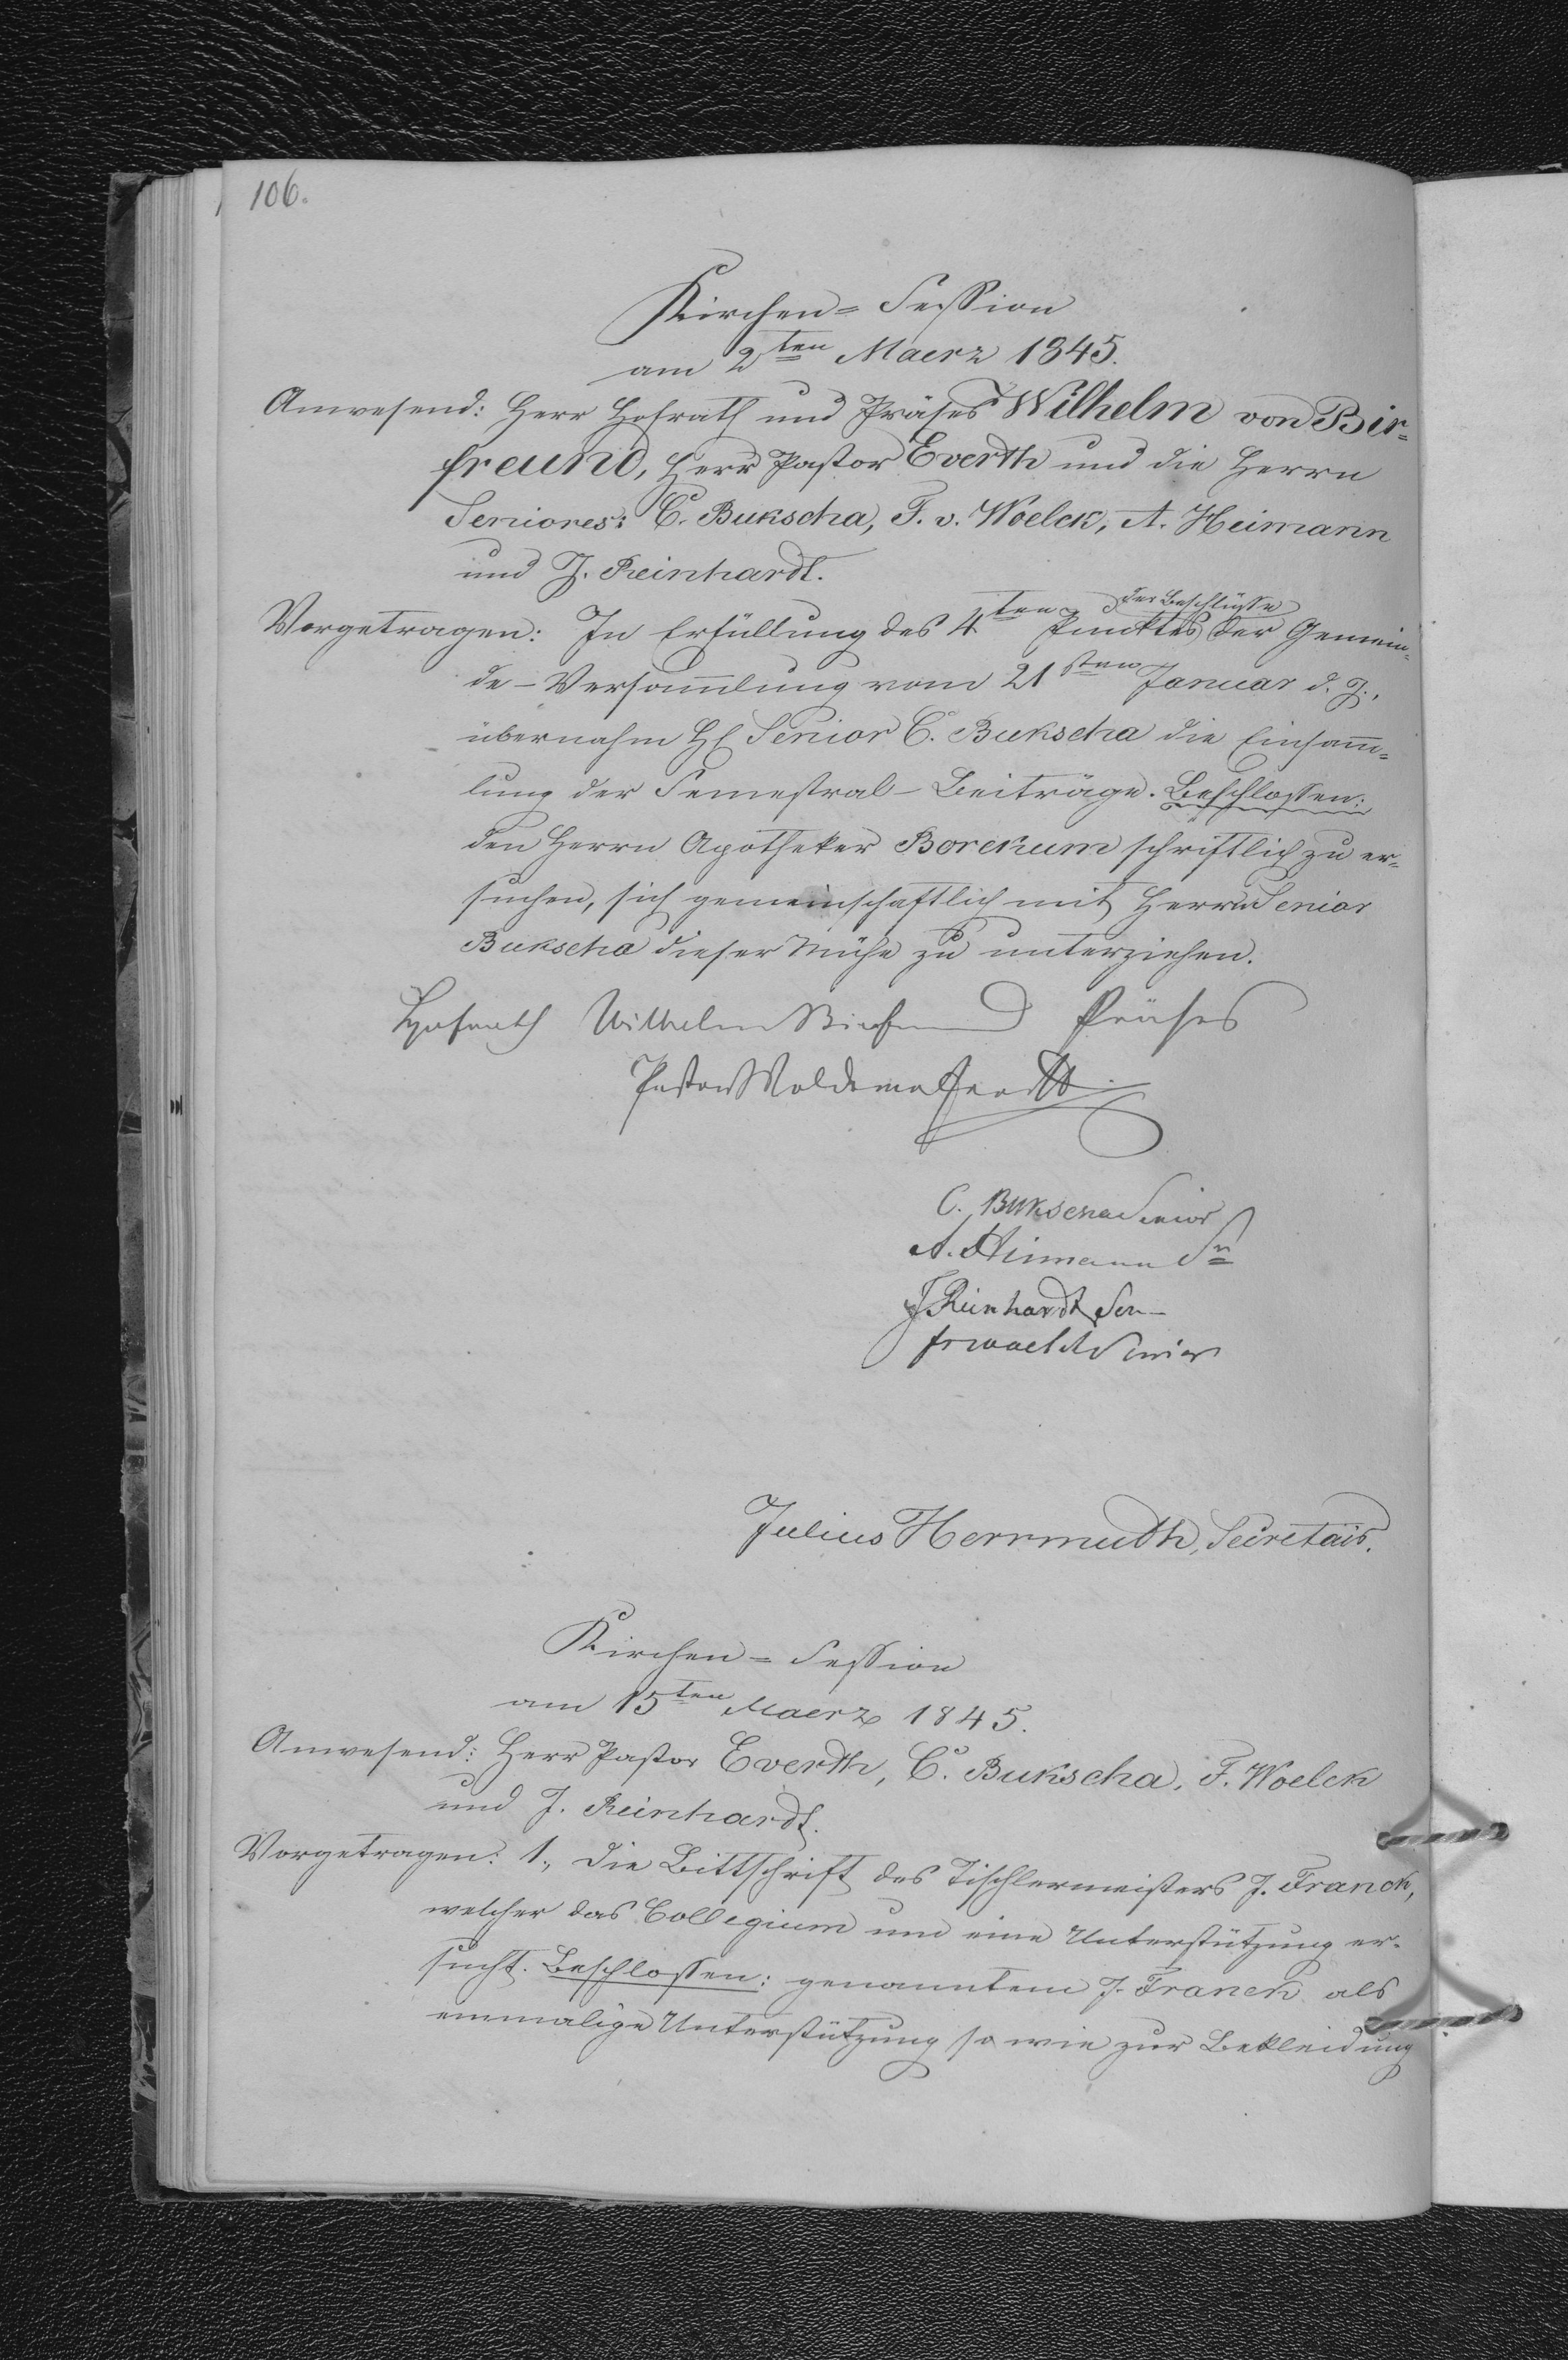 106.
Kirchen-Session
am 2ten Maerz 1845.
Anwesend: Herr Hofrath und Präses Wilhelm von Bir-
freund, Herr Pastor Everth und die Herrn
Seniores: C. Bukscha, F. v. Woelck, A. Heimann
und J. Reinhardt.
der Beschlüsse
Vorgetragen: In Erfüllung des 4ten Punktes der Gemein-
de-Versammlung vom 21sten Januar d. J.,
übernahm H Senior C. Bukscha die Einsamm-
lung der Semestral-Beiträge. Beschlossen:
den Herrn Apotheker Borchum schriftlich zu er-
suchen, sich gemeinschaftlich mit Herrn Senior
Bukscha dieser Mühe zu unterziehen.
Hofrath Wilhelm Birfreund Präses
Pastor Woldemar Everth
C. Bukscha Senior
A. Heimann Sn
J Reinhardt Sen
F v Woelck Senior
Julius Herrmuth, Secretair.
Kirchen-Session
am 15ten Maerz 1845.
Anwesend: Herr Pastor Everth, C. Bukscha, F. Woelck
und J. Reinhardt.
Vorgetragen: 1., Die Bittschrift des Tischlermeisters J. Franck,
welcher das Collegium um eine Unterstützung er-
sucht. Beschlossen: genanntem J. Franck als
einmalige Unterstützung so wie zur Bekleidung